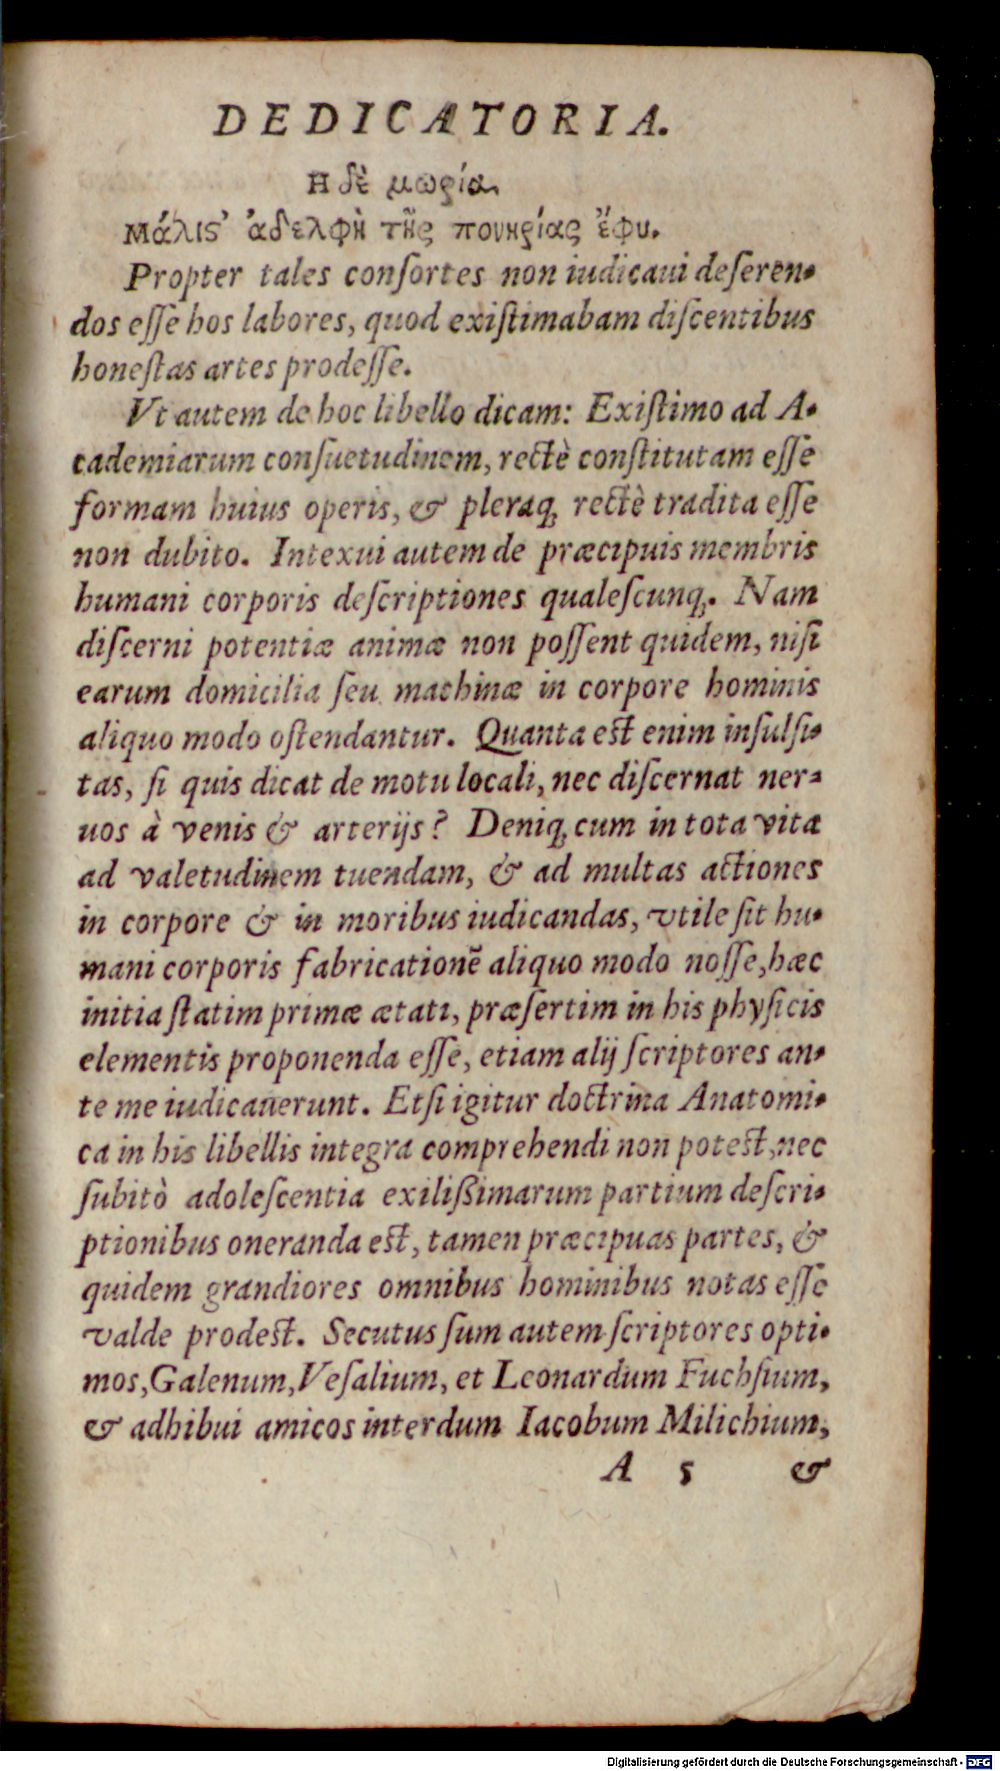 DEDICATORIA.
Η δὲ μωρία
Μάλιϛ' ἀδελφὴ τῆς πονηρίας ἔφυ.
Propter tales conſortes non iudicaui deſeren-
dos eſſe hos labores, quod exiſtimabam diſcentibus
honeſtas artes prodeſſe.
Vt autem de hoc libello dicam: Exiſtimo ad A-
cademiarum conſuetudinem, rectè conſtitutam eſſe
formam huius operis, & pleraq; rectè tradita eſſe
non dubito. Intexui autem de præcipuis membris
humani corporis deſcriptiones qualeſcunq;. Nam
diſcerni potentiæ animæ non poſſent quidem, niſi
earum domicilia ſeu machinæ in corpore hominis
aliquo modo oſtendantur. Quanta eſt enim inſulſi-
tas, ſi quis dicat de motu locali, nec diſcernat ner-
uos à venis & arterijs? Deniq; cum in tota vita
ad valetudinem tuendam, & ad multas actiones
in corpore & in moribus iudicandas, vtile ſit hu-
mani corporis fabricationē aliquo modo noſſe, hæc
initia ſtatim primæ ætati, præſertim in his phyſicis
elementis proponenda eſſe, etiam alij ſcriptores an-
te me iudicauerunt. Etſi igitur doctrina Anatomi-
ca in his libellis integra comprehendi non poteſt, nec
ſubitò adoleſcentia exilißimarum partium deſcri-
ptionibus oneranda eſt, tamen præcipuas partes, &
quidem grandiores omnibus hominibus notas eſſe
valde prodeſt. Secutus ſum autem ſcriptores opti-
mos, Galenum, Veſalium, et Leonardum Fuchſium,
& adhibui amicos interdum Iacobum Milichium,
A 5 &
Digitalisierung gefördert durch die Deutsche Forschungsgemeinschaft - DFG